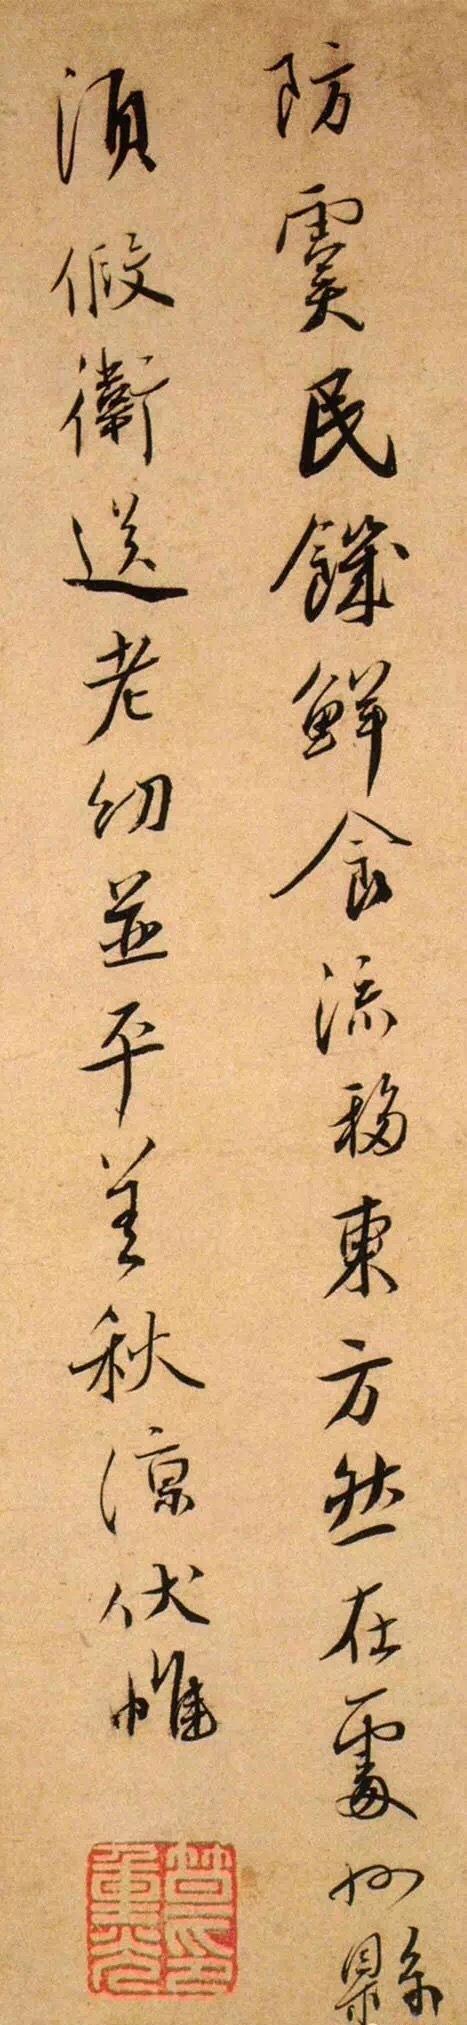 防虞民饑鮮食流移東方然在處州縣
須假衛送老幼並平善秋涼伏惟
笪印重光